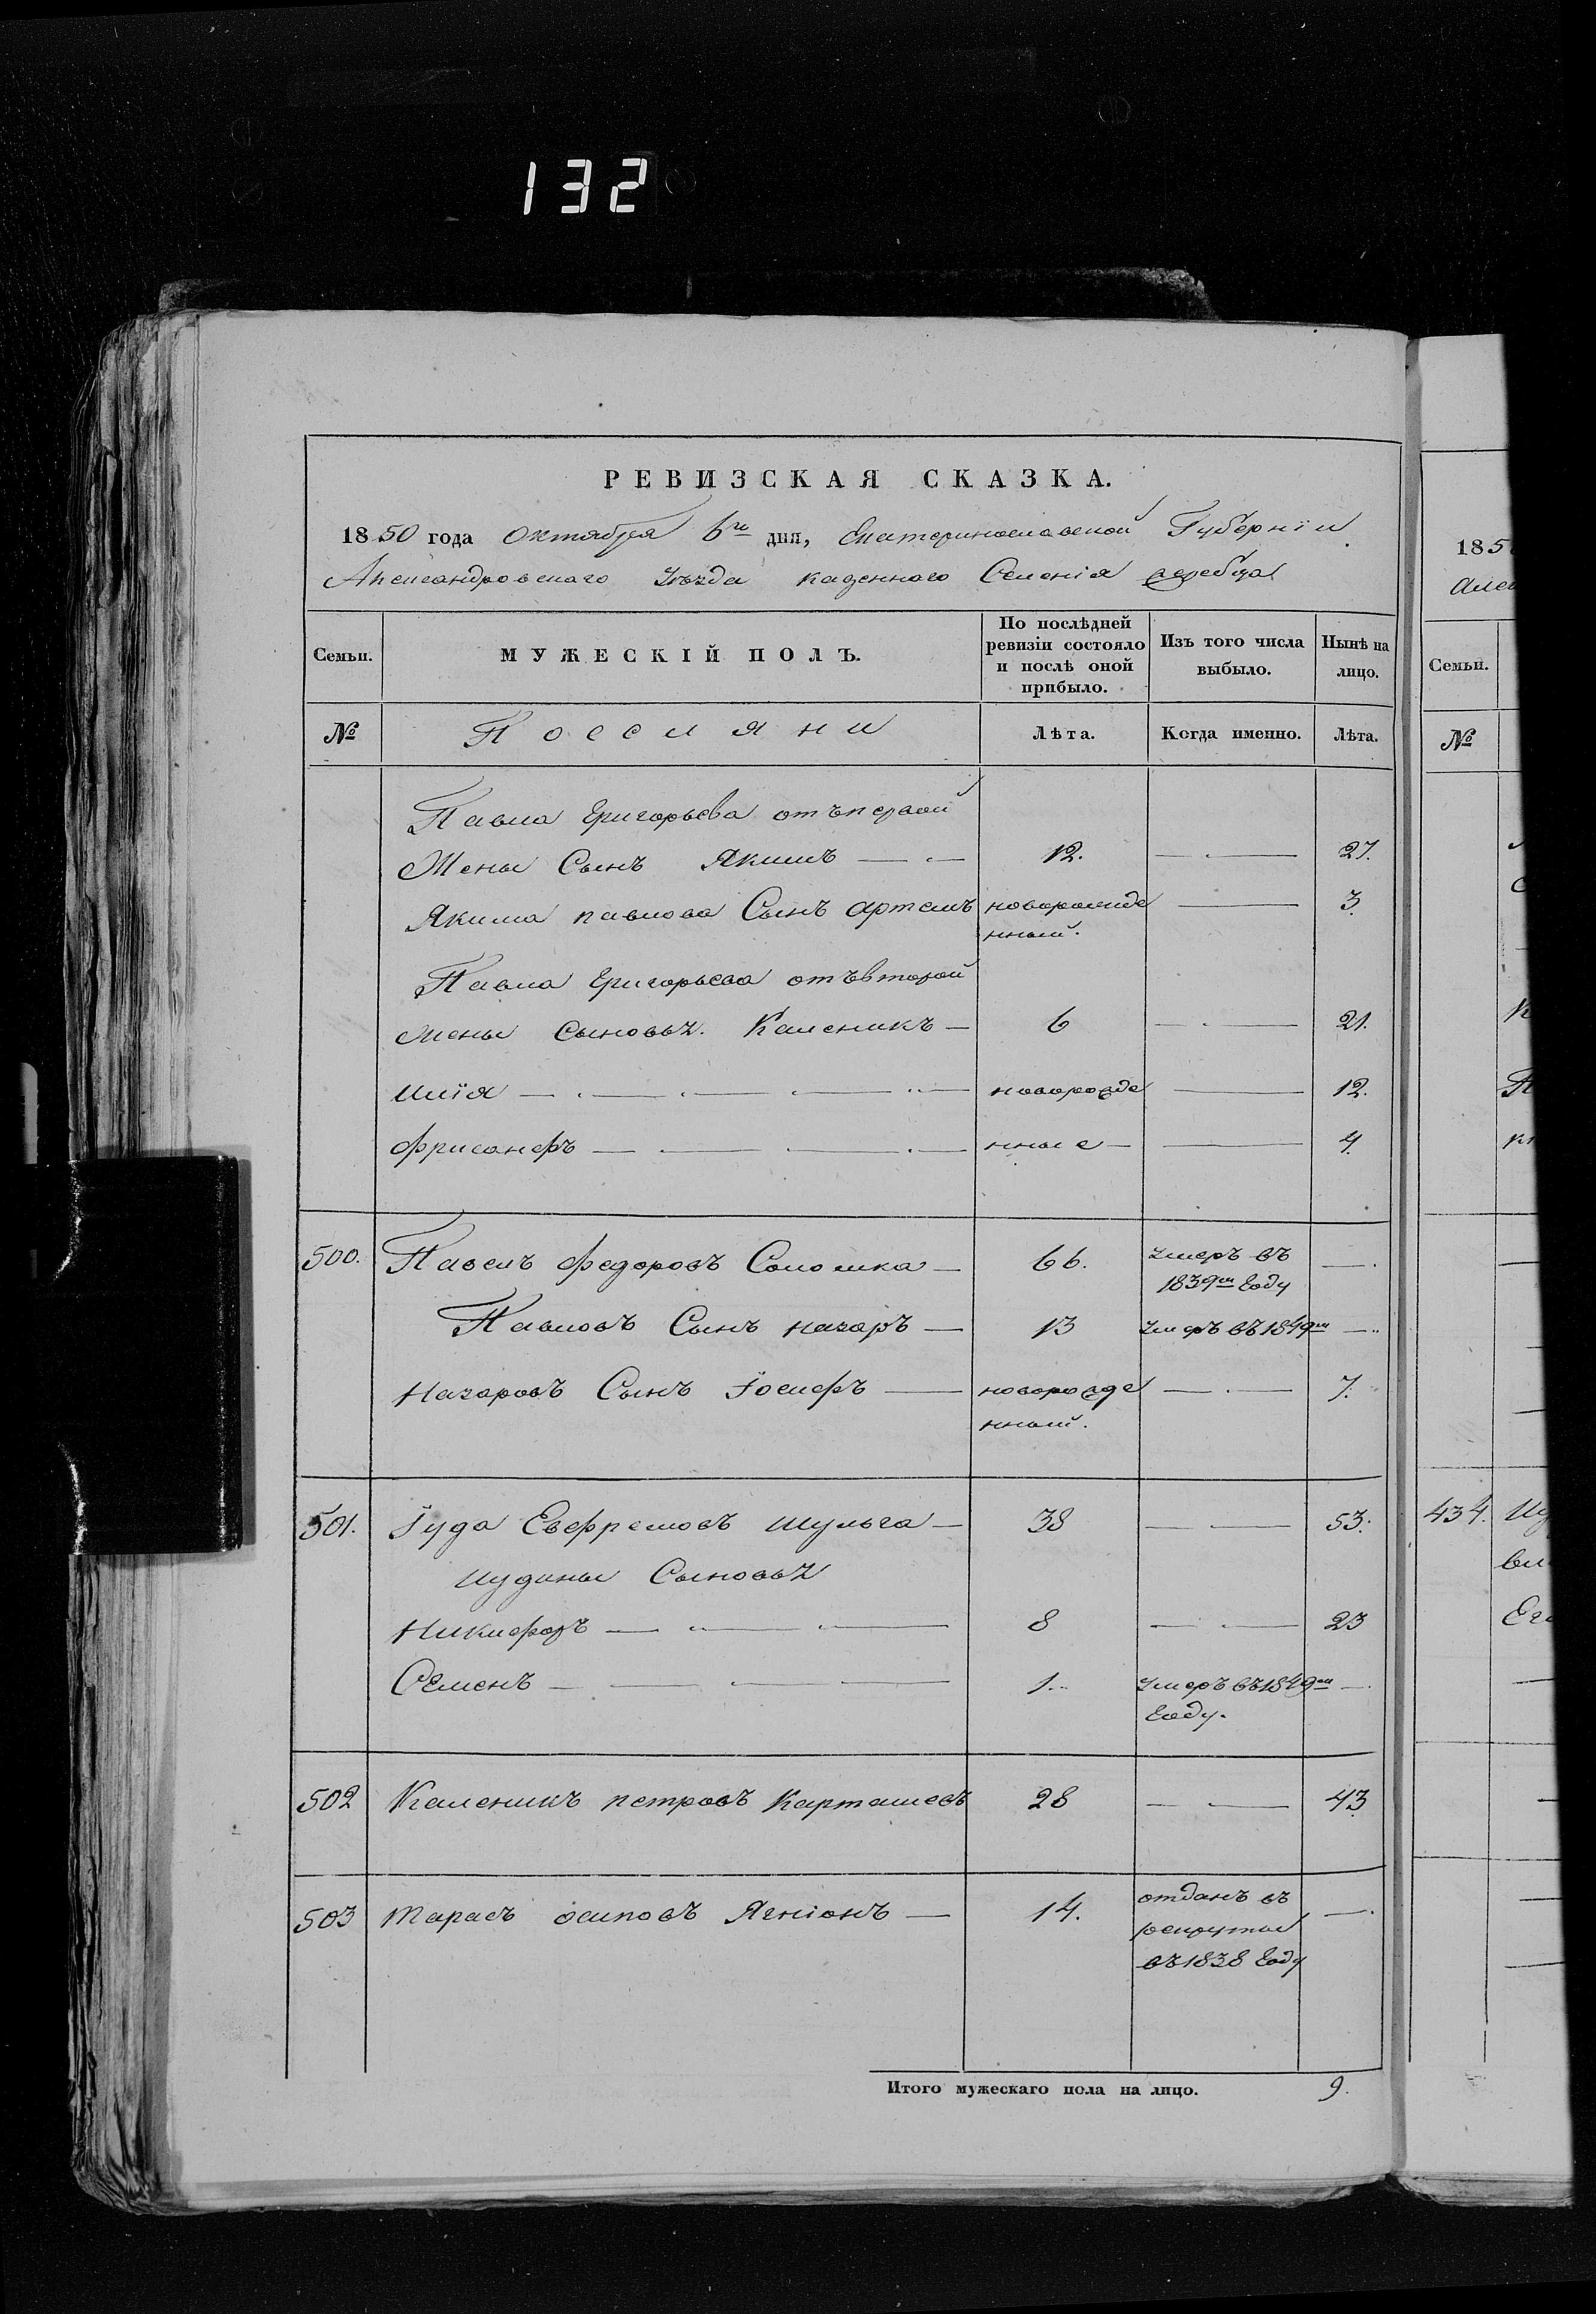 132
РЕВИЗСКАЯ СКАЗКА.
1850 года Октября 6го дня, Екатеринославской Губерніи
Александровскаго Уѣзда казеннаго Селенія
Семьи. МУЖЕСКІЙ ПОЛЪ. По послѣдней ревизіи состояло и послѣ оной прибыло. Изъ того числа выбыло. Нынѣ на лицо.
№ Поселяни Лѣта. Когда именно. Лѣта.
Павла Григорьева отъ первой
Жены Сынъ Якимъ 12. 27.
Якима павлова Сынъ Артемъ новорожде 3.
нный.
Павла Григорьева отъ второй
жены Сыновьѧ. Каленикъ 6 21.
Илія новорожде 12.
Фрисанфъ нные 4.
500. Павелъ Федоровъ Соломка 66. умеръ въ
1839м Году
Павловъ Сынъ назаръ 13 умеръ въ 1849м
Назаровъ Сынъ Іосифъ новорожде 7.
нный.
501. Іуда Евфремовъ Шульга 38 53.
Иудины Сыновьѧ
Никифоръ 8 23
Семенъ 1. умеръ въ 1849м
Году.
502 Каленикъ петровъ Карташевъ 28 43
503 Тарасъ осиповъ 14. отданъ въ
рекруты
въ 1838 Году
Итого мужескаго пола на лицо. 9.
185
Алек
Семьи.
№
434.